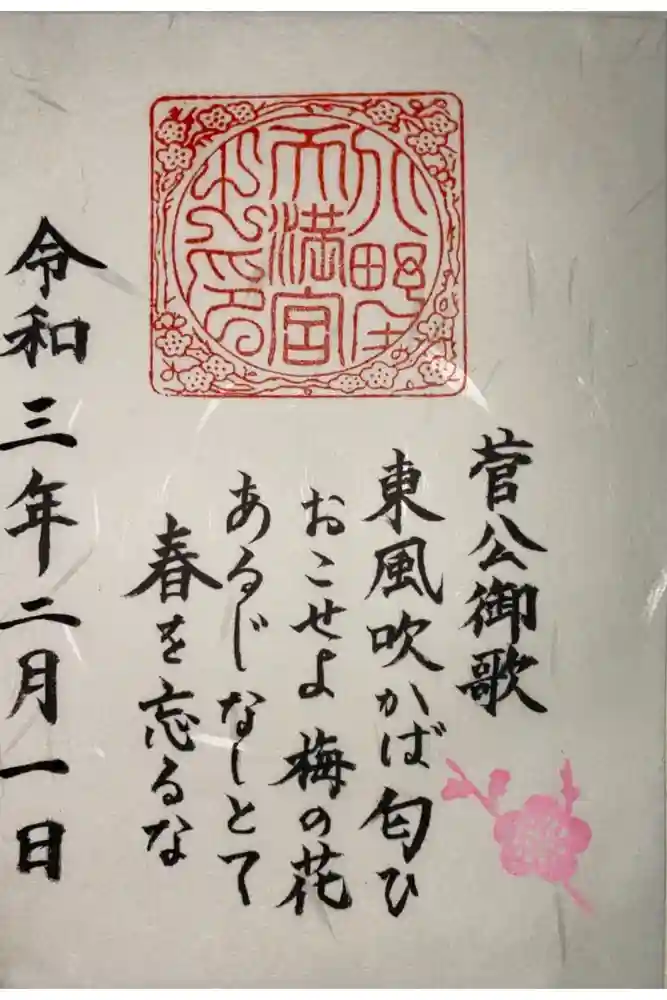 天満宮
菅公御歌
東風吹かば匂ひ
おこせよ 梅の花
あるじなしとて
春を忘るな
令和三年二月一日